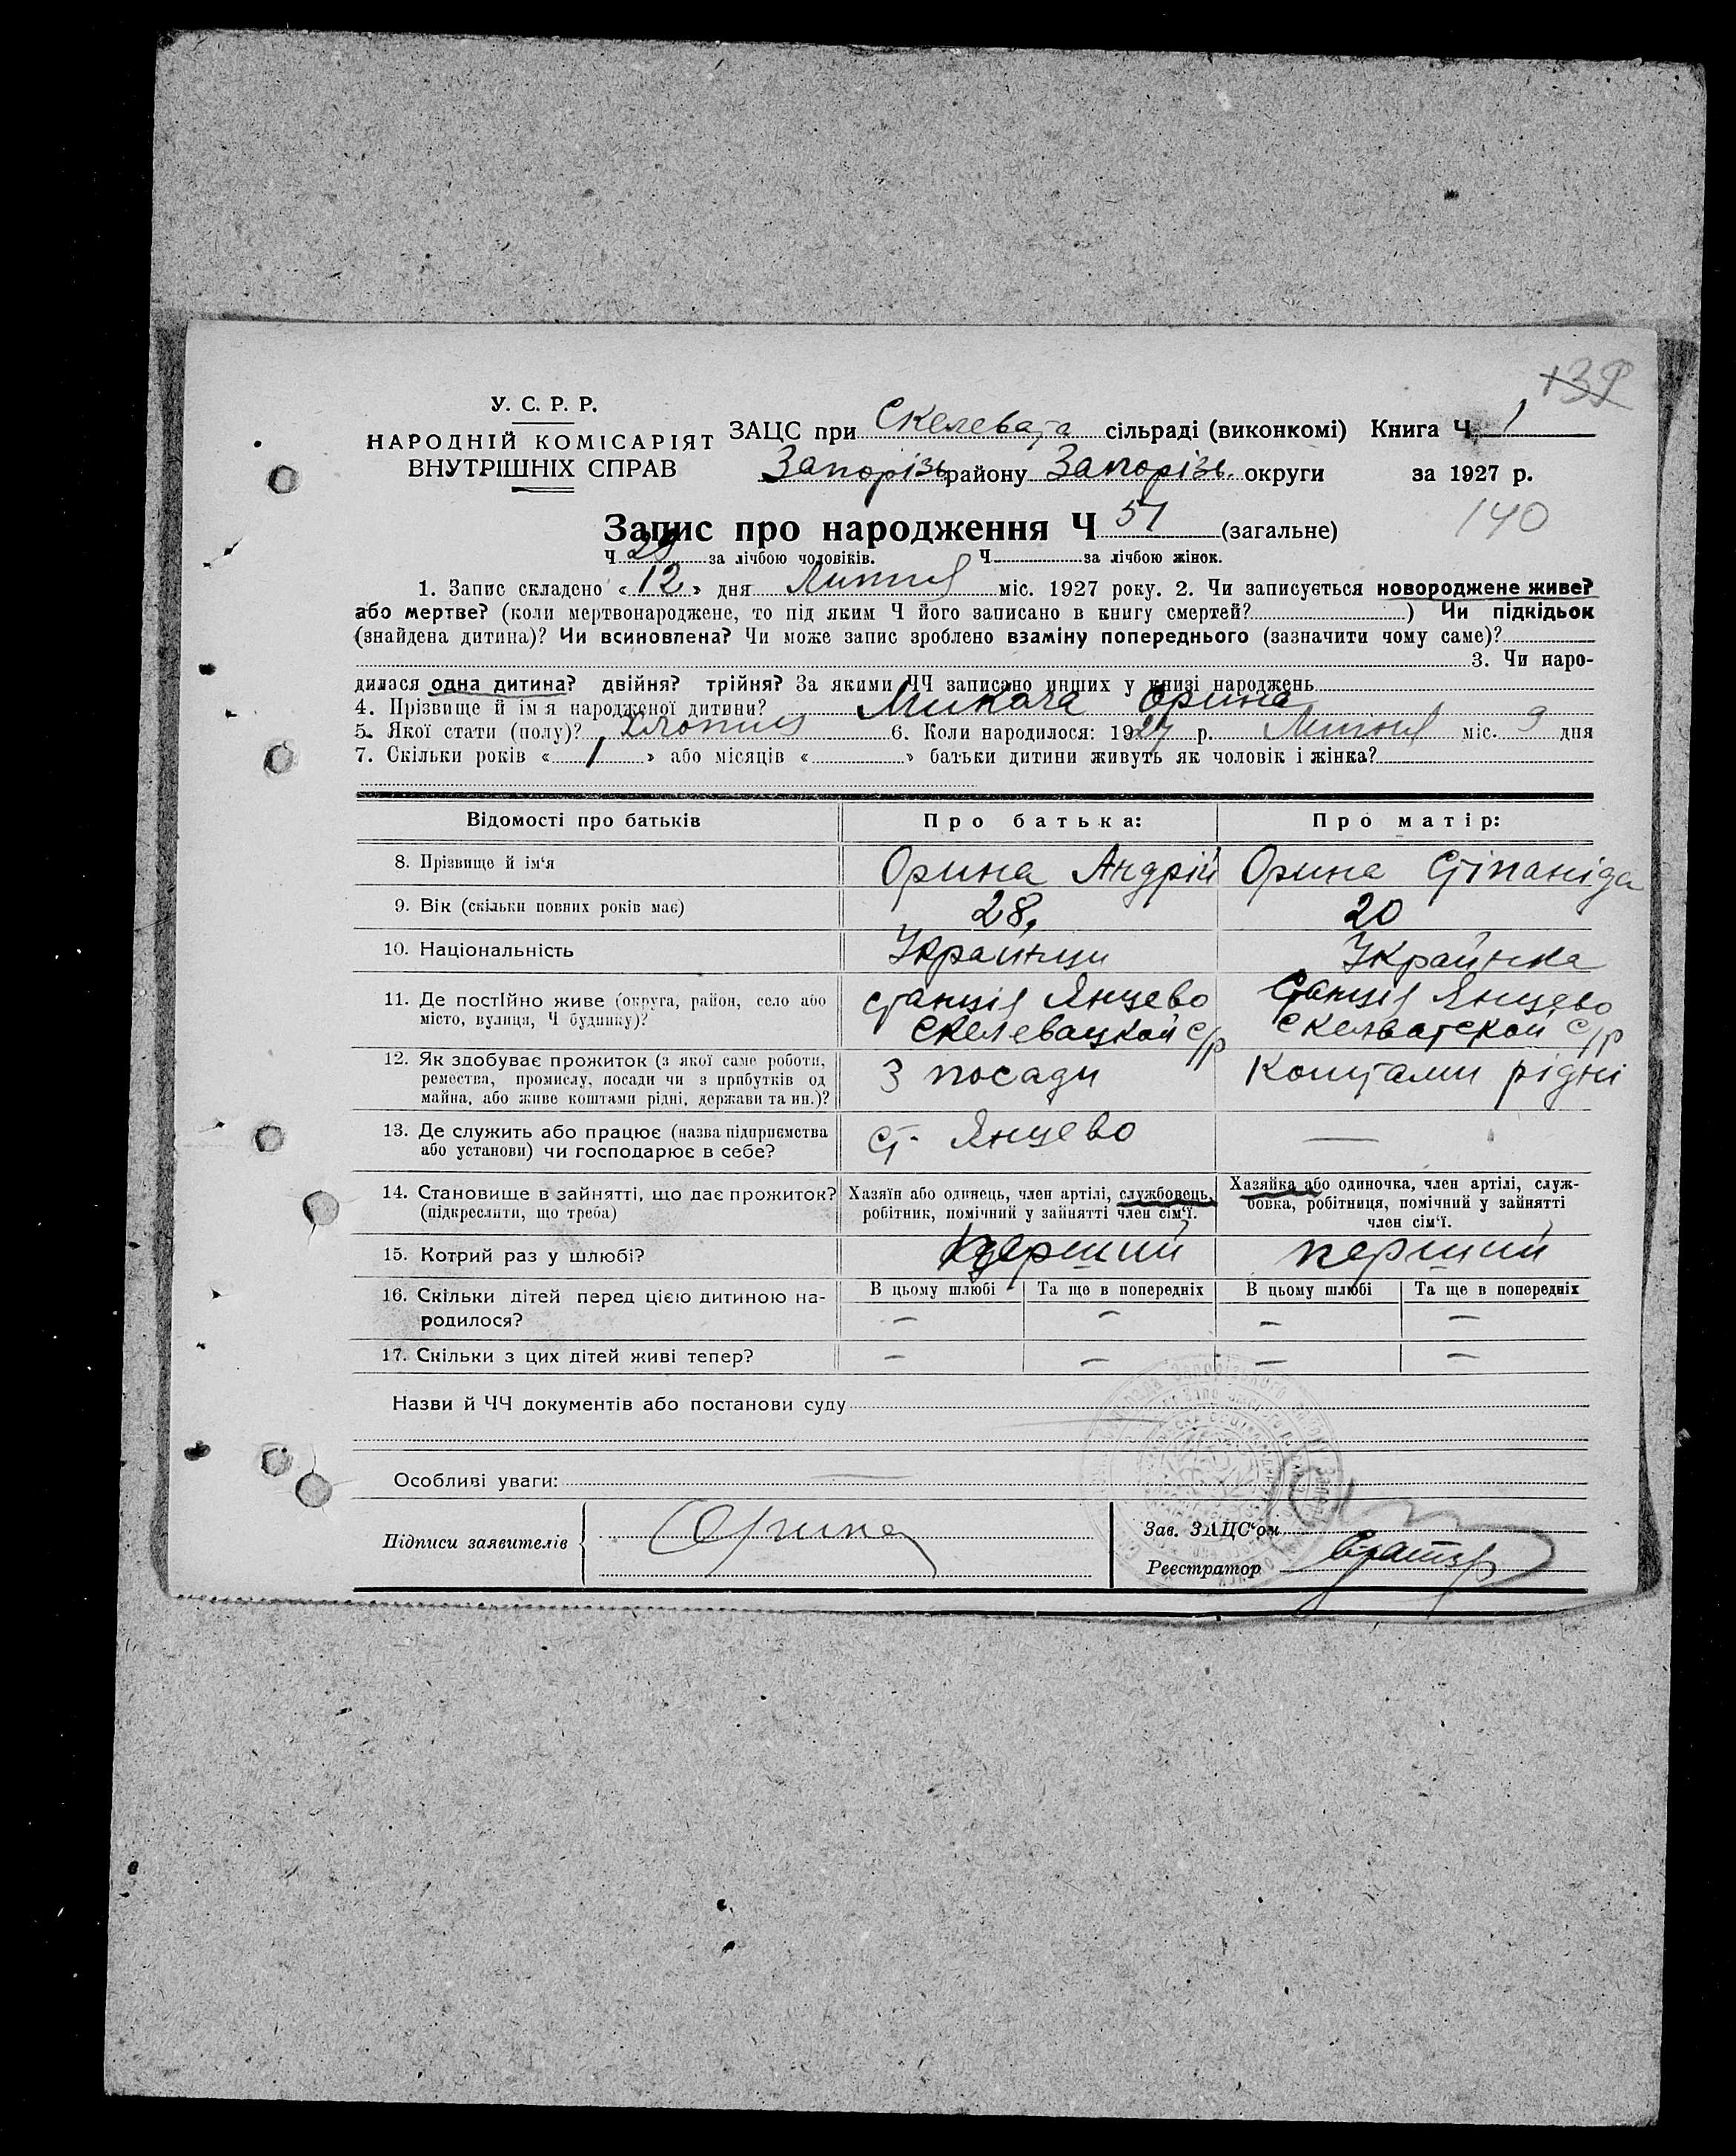 139
У. С. Р. Р.
НАРОДНІЙ КОМІСАРІЯТ
ВНУТРІШНІХ СПРАВ
ЗАЦС при Скелевата сільраді (виконкомі) Книга Ч 1
Запорізь району Запорізь. округи за 1927 р.
140
Запис про народження Ч 51 (загальне)
Ч 29 за лічбою чоловіків. Ч за лічбою жінок.
1. Запис складено «12» дня Липня міс. 1927 року. 2. Чи записується новороджене живе?
або мертве? (коли мертвонароджене, то під яким Ч його записано в книгу смертей? ) Чи підкідьок
(знайдена дитина)? Чи всиновлена? Чи може запис зроблено взаміну попереднього (зазначити чому саме)?
3. Чи наро-
дилася одна дитина? двійня? трійня? За якими ЧЧ записано инших у книзі народжень
4. Прізвище й імя народженої дитини? Микола Орина
5. Якої стати (полу)? Хлопиць 6. Коли народилося: 1927 р. Липня міс. 9 дня
7. Скільки років « 1 » або місяців « » батьки дитини живуть як чоловік і жінка?
Відомості про батьків Про батька: Про матір:
8. Прізвище й ім‘я Орина Андрій Орина Стіпаніда
9. Вік (скільки повних років має) 28, 20
10. Національність Україінци Українка
11. Де постійно живе (округа, район, село або станція Янцево Станція Янцево
місто, вулиця, Ч будинку)? Скелевацкой с/р Скелватской с/р
12. Як здобуває прожиток (з якої саме роботи,
ремества, промислу, посади чи з прибутків од З посади Коштами рідні
майна, або живе коштами рідні, держави та ин.)?
13. Де служить або працює (назва підприємства ст. Янцево —
або установи) чи господарює в себе?
14. Становище в зайнятті, що дає прожиток? Хазяїн або одинець, член артілі, службовець, Хазяйка або одиночка, член артілі, служ-
(підкреслити, що треба) робітник, помічний у зайнятті член сім‘ї. бовка, робітниця, помічний у зайнятті
член сім‘ї.
15. Котрий раз у шлюбі? перший перший
16. Скільки дітей перед цією дитиною на- В цьому шлюбі Та ще в попередніх В цьому шлюбі Та ще в попередніх
родилося? — — — —
17. Скільки з цих дітей живі тепер? — — — —
Назви й ЧЧ документів або постанови суду
Особливі уваги:
Підписи заявителів Орина
Зав. ЗАЦС‘ом
Реєстратор